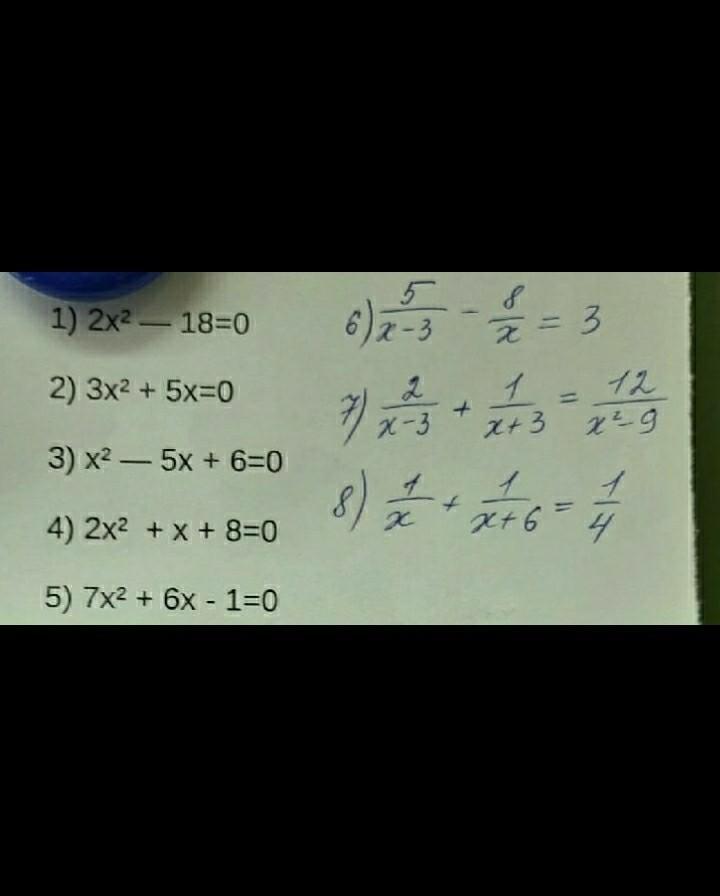 1) 2x² — 18=0
2) 3x² + 5x=0
3) x² — 5x + 6=0
4) 2x² + x + 8=0
5) 7x² + 6x - 1=0
6) 5/(x-3) - 8/x = 3
7) 2/(x-3) + 1/(x+3) = 12/(x²-9)
8) 1/x + 1/(x+6) = 1/4